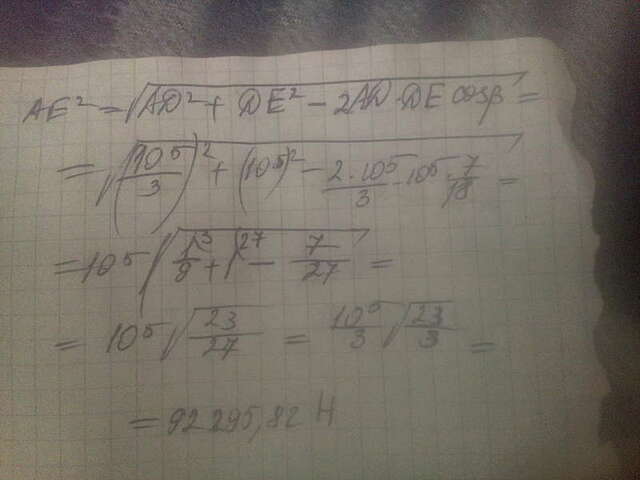 AE² = √(AD² + DE² - 2AD·DE cosβ) =
= √((10⁵/3)² + (10⁵)² - 2·10⁵/3 · 10⁵ · 7/18) =
= 10⁵ √(1/9 ³ + 1 ²⁷ - 7/27) =
= 10⁵ √(23/27) = 10⁵/3 √(23/3) =
= 92 295,82 Н